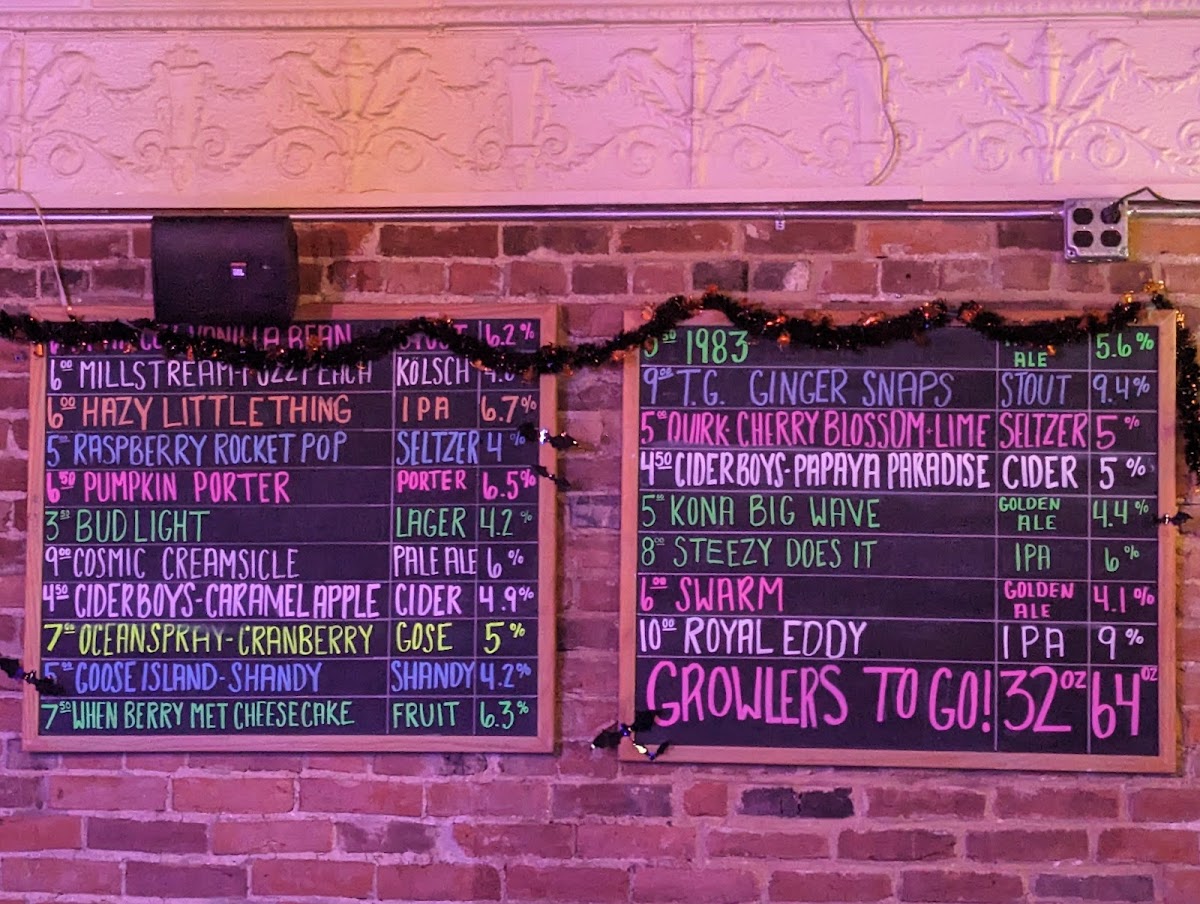 JBL
VANILLA BEAN STOUT 6.2%
6.00 MILLSTREAM-FUZZ PEACH KÖLSCH
6.00 HAZY LITTLE THING IPA 6.7%
5.00 RASPBERRY ROCKET POP SELTZER 4%
6.50 PUMPKIN PORTER PORTER 6.5%
3.53 BUD LIGHT LAGER 4.2%
9.00 COSMIC CREAMSICLE PALE ALE 6%
4.50 CIDERBOYS-CARAMEL APPLE CIDER 4.9%
7.00 OCEANSPRAY-CRANBERRY GOSE 5%
5.00 GOOSE ISLAND-SHANDY SHANDY 4.2%
7.50 WHEN BERRY MET CHEESECAKE FRUIT 6.3%
1983 ALE 5.6%
9.00 T.G. GINGER SNAPS STOUT 9.4%
5.00 QUIRK CHERRY BLOSSOM+LIME SELTZER 5%
4.50 CIDERBOYS-PAPAYA PARADISE CIDER 5%
5.00 KONA BIG WAVE GOLDEN ALE 4.4%
8.00 STEEZY DOES IT IPA 6%
6.00 SWARM GOLDEN ALE 4.1%
10.00 ROYAL EDDY IPA 9%
GROWLERS TO GO! 32OZ 64OZ